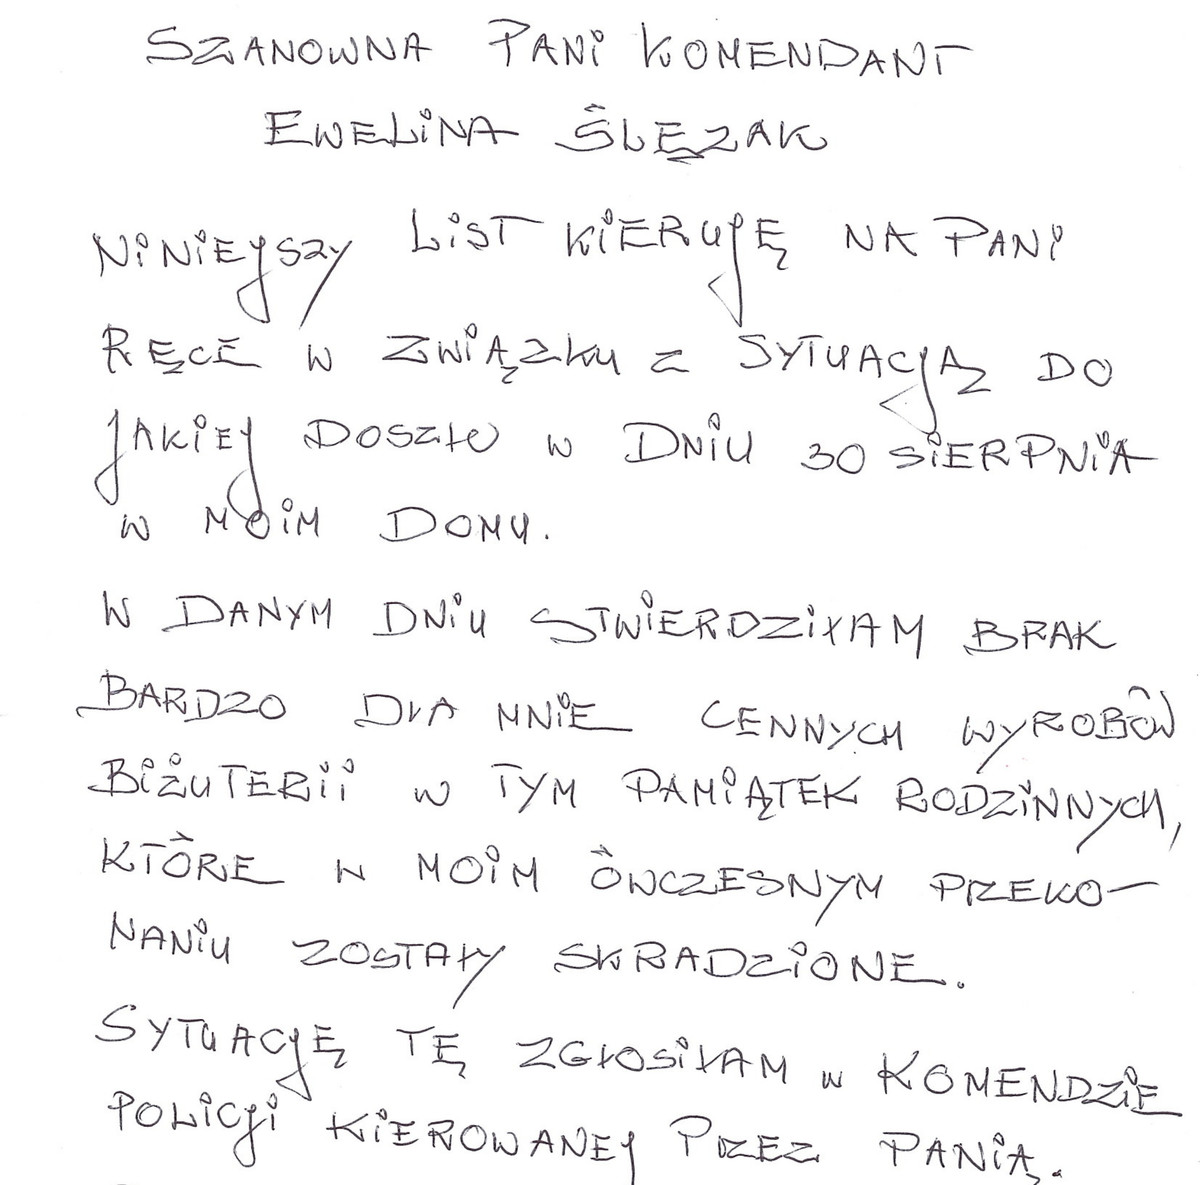 SZANOWNA PANI KOMENDANT
EWELINA ŚLĘZAK
NINIEJSZY LIST KIERUJĘ NA PANI
RĘCE W ZWIĄZKU Z SYTUACJĄ DO
JAKIEJ DOSZŁO W DNIU 30 SIERPNIA
W MOIM DOMU.
W DANYM DNIU STWIERDZIŁAM BRAK
BARDZO DLA MNIE CENNYCH WYROBÓW
BIŻUTERII W TYM PAMIĄTEK RODZINNYCH,
KTÓRE W MOIM ÓWCZESNYM PRZEKO-
NANIU ZOSTAŁY SKRADZIONE.
SYTUACJĘ TĘ ZGŁOSIŁAM W KOMENDZIE
POLICJI KIEROWANEJ PRZEZ PANIĄ.